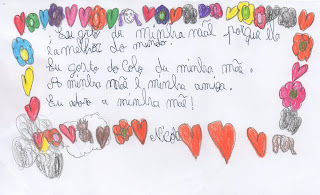 Eu gosto de minha mãe porque ela
é a melhor do mundo.
Eu gosto do colo da minha mãe.
A minha mãe é minha amiga.
Eu adoro a minha mãe!
Nicole